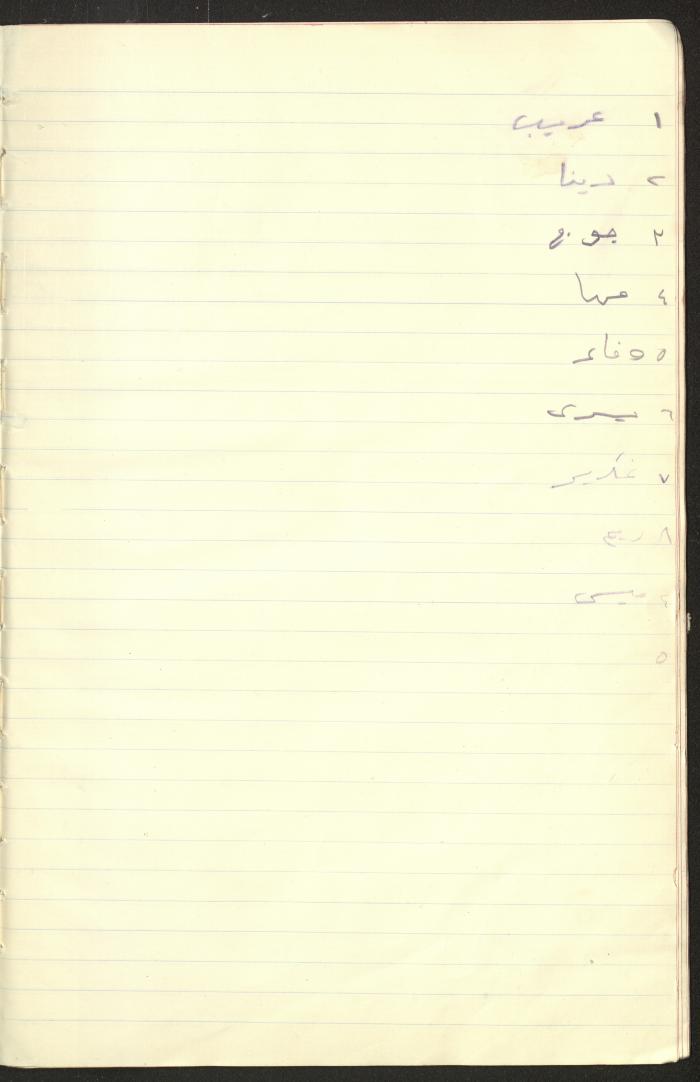 ١ عريب
٢ دينا
٣ جورج
٤ مها
٥ وفاء
٦ يسرى
٧ غدير
٨ ربيع
٤ ميسى
٥